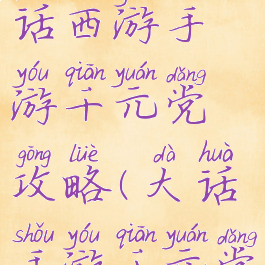 话西游手
yóu qiān yuán dǎng
游千元党
gōng lüè dà huà
攻略(大话
shǒu yóu qiān yuán dǎng
手游千元党